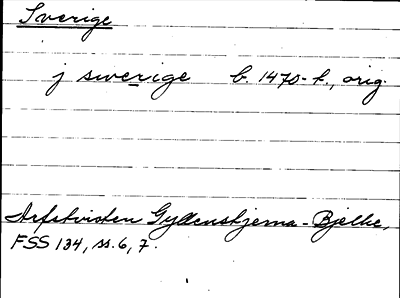 Sverige
j swerige b. 1470-t., orig.
Arfstvisten Gyllenstjerna - Bjelke,
FSS 134, ss. 6, 7.